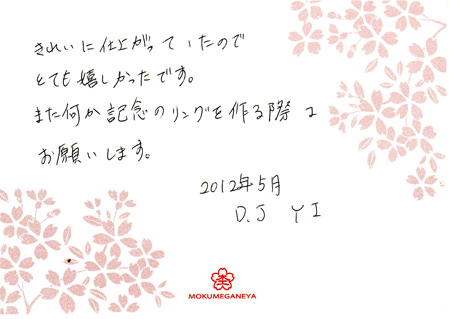 きれいに仕上がっていたので
とても嬉しかったです。
また何か記念のリングを作る際に
お願いします。
2012年5月
D.J YI
MOKUMEGANEYA